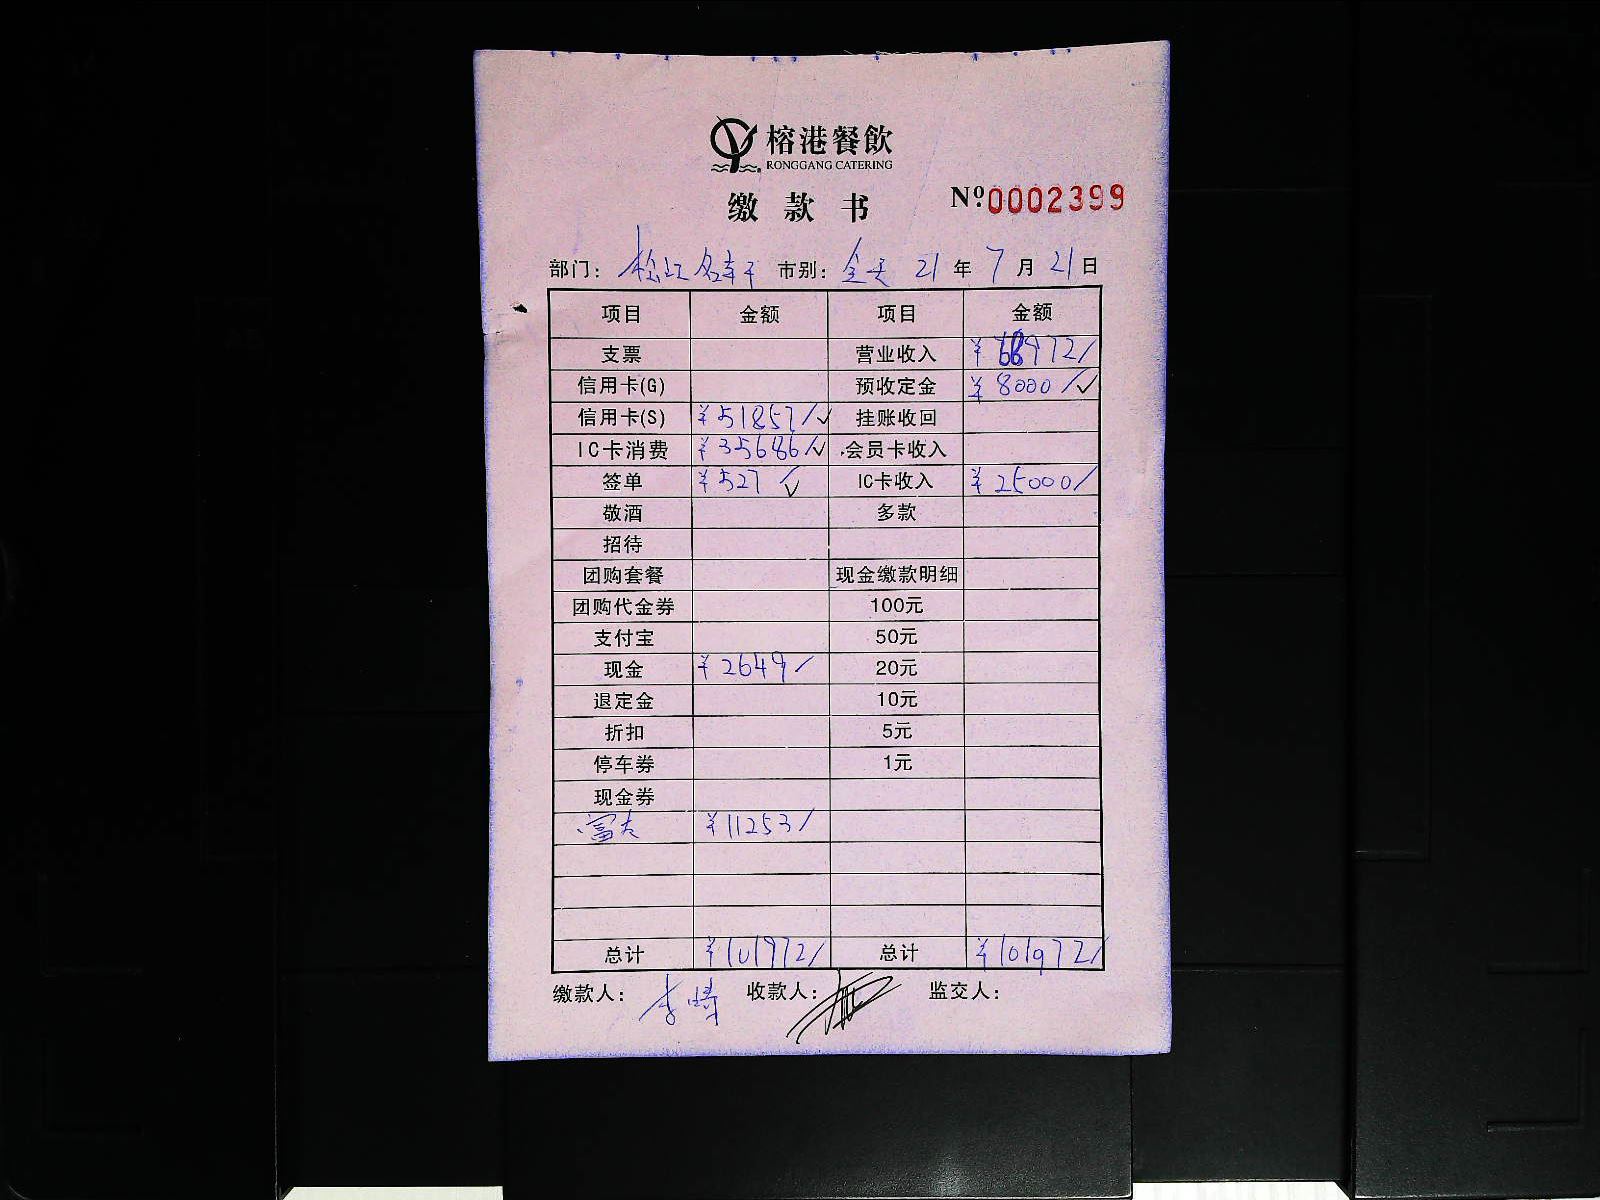 榕港餐飲
RONGGANG CATERING
缴款书 Nº:0002399
部门: 松江名轩 市别: 全天 21年 7月 21日
项目 金额 项目 金额
支票 营业收入 ¥68972/
信用卡(G) 预收定金 ¥8000/✓
信用卡(S) ¥51857/✓ 挂账收回
IC卡消费 ¥35686/✓ 会员卡收入
签单 ¥527/✓ IC卡收入 ¥25000/
敬酒 多款
招待
团购套餐 现金缴款明细
团购代金券 100元
支付宝 50元
现金 ¥2649/ 20元
退定金 10元
折扣 5元
停车券 1元
现金券
富友 ¥11253/
总计 ¥101972/ 总计 ¥101972/
缴款人: 收款人: 监交人: